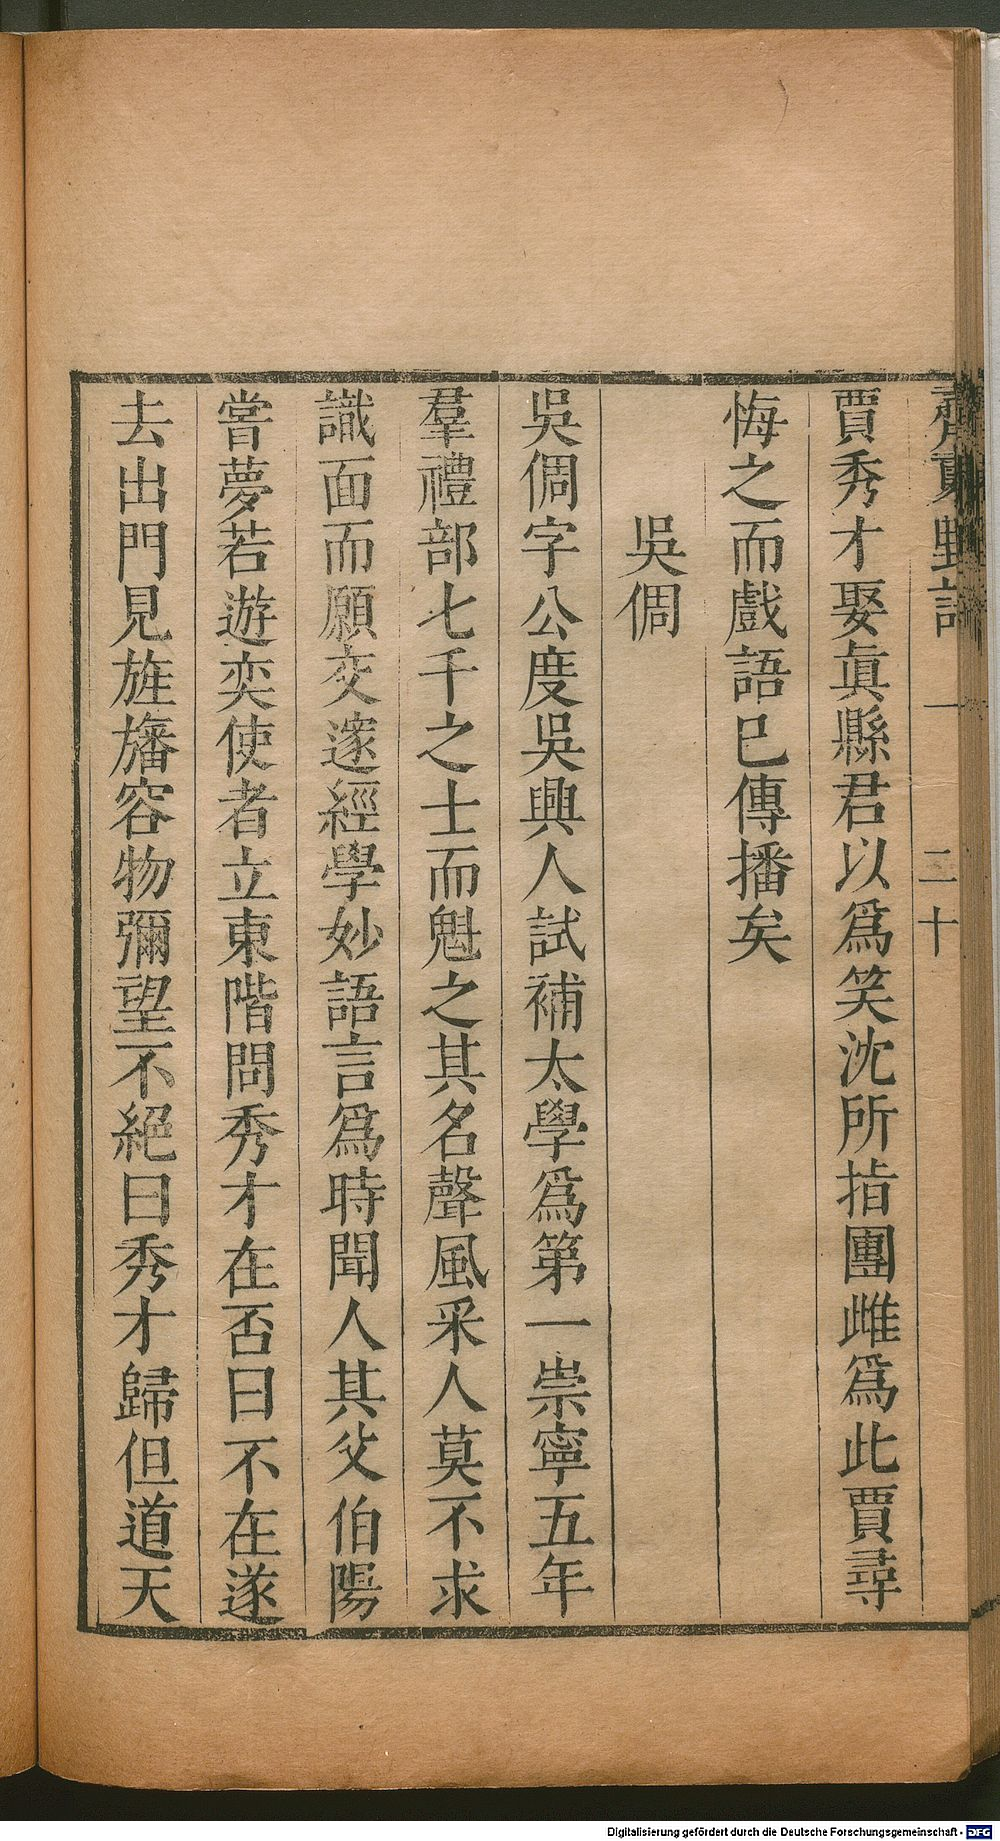 齊東野語 一 二十
賈秀才娶眞縣君以爲笑沈所指團雌爲此賈尋
悔之而戲語已傳播矣
吳倜
吳倜字公度吳興人試補太學爲第一崇寧五年
羣禮部七千之士而魁之其名聲風采人莫不求
識面而願交邃經學妙語言爲時聞人其父伯陽
嘗夢若遊奕使者立東階問秀才在否曰不在遂
去出門見旌旛容物彌望不絕曰秀才歸但道天
Digitalisierung gefördert durch die Deutsche Forschungsgemeinschaft - DFG